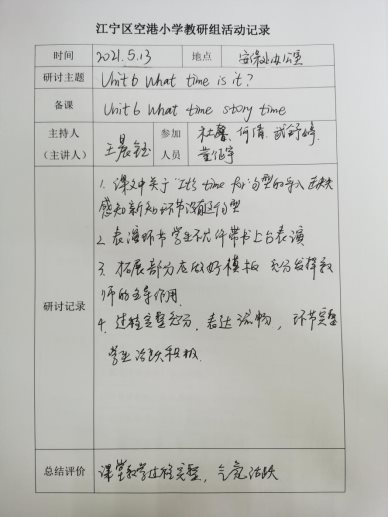 江宁区空港小学教研组活动记录
时间 2021.5.13 地点 安保处办公室
研讨主题 Unit 6 What time is it?
备课 Unit 6 What time story time
主持人 参加 杜馨、何倩、武舒婷
（主讲人） 王晨钰 人员
1. 课文中关于"It's time for"句型的导入还缺
感知新知环节没有这个句型
2. 表演环节学生不允许带书上台表演
3. 拓展部分应做好模板 充分发挥教
师的主导作用.
研讨记录
4. 过程完整充分，表达流畅，环节完整
学生活跃积极.
总结评价 课堂教学过程完整，气氛活跃